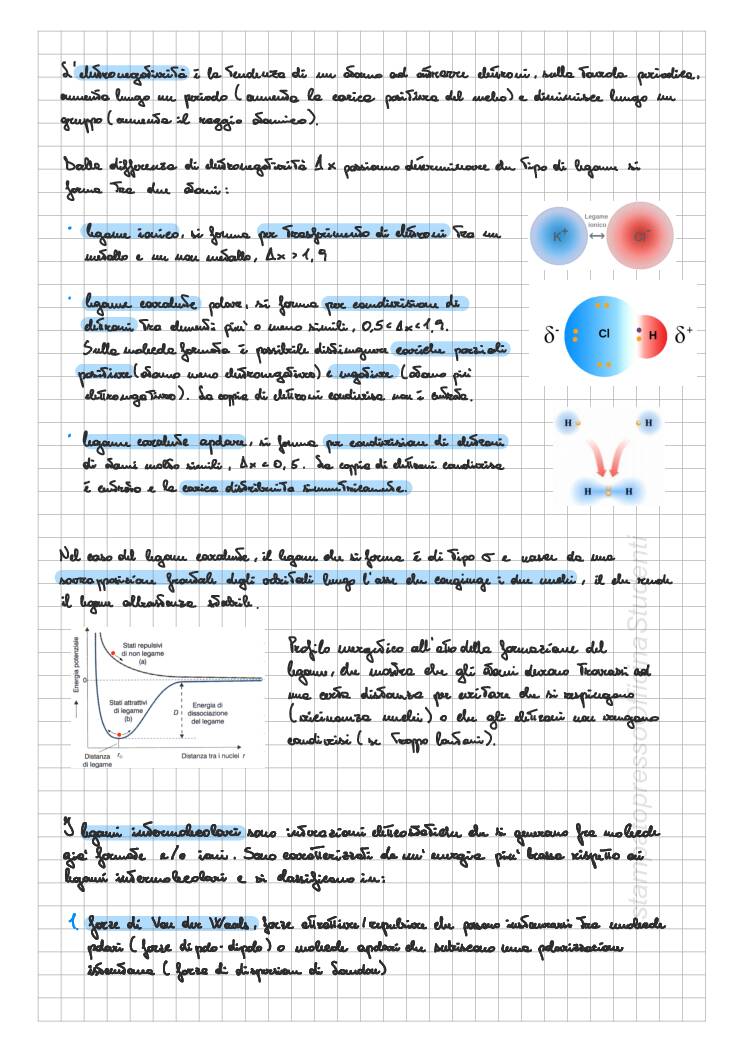 L'elettronegatività è la tendenza di un atomo ad attrarre elettroni, sulla Tavola periodica,
aumenta lungo un periodo (aumenta la carica positiva del nucleo) e diminuisce lungo un
gruppo (aumenta il raggio atomico).
Dalla differenza di elettronegatività Δx possiamo determinare che Tipo di legame si
forma Tra due atomi:
· legame ionico, si forma per Trasferimento di elettroni Tra un
metallo e un non metallo, Δx > 1,9
Legame
ionico
K⁺ ↔ Cl⁻
· legame covalente polare, si forma per condivisione di
elettroni Tra elementi più o meno simili, 0,5 < Δx < 1,9.
Sulla molecola formata è possibile distinguere cariche parziali
positive (atomo meno elettronegativo) e negative (atomo più
elettronegativo). La coppia di elettroni condivisa non è centrata.
δ⁻ Cl H δ⁺
· legame covalente apolare, si forma per condivisione di elettroni
di atomi molto simili, Δx < 0,5. La coppia di elettroni condivisa
è centrata e la carica distribuita simmetricamente.
H H
H H
Nel caso del legame covalente, il legame che si forma è di Tipo σ e nasce da una
sovrapposizione frontale degli orbitali lungo l'asse che congiunge i due nuclei, il che rende
il legame abbastanza stabile.
Energia potenziale
0
Stati repulsivi
di non legame
(a)
Stati attrattivi
di legame
(b)
D
Energia di
dissociazione
del legame
Distanza
di legame
r₀
Distanza tra i nuclei r
Profilo energetico all'atto della formazione del
legame, che mostra che gli atomi devono Trovarsi ad
una certa distanza per evitare che si respingano
(vicinanza nuclei) o che gli elettroni non vengano
condivisi (se Troppo lontani).
I legami intermolecolari sono interazioni elettrostatiche che si generano fra molecole
già formate e/o ioni. Sono caratterizzati da un'energia più bassa rispetto ai
legami intermolecolari e si classificano in:
1 forze di Van der Waals, forze attrattive/repulsive che possono instaurarsi Tra molecole
polari (forze di polo-dipolo) o molecole apolari che subiscono una polarizzazione
istantanea (forze di dispersione di London)